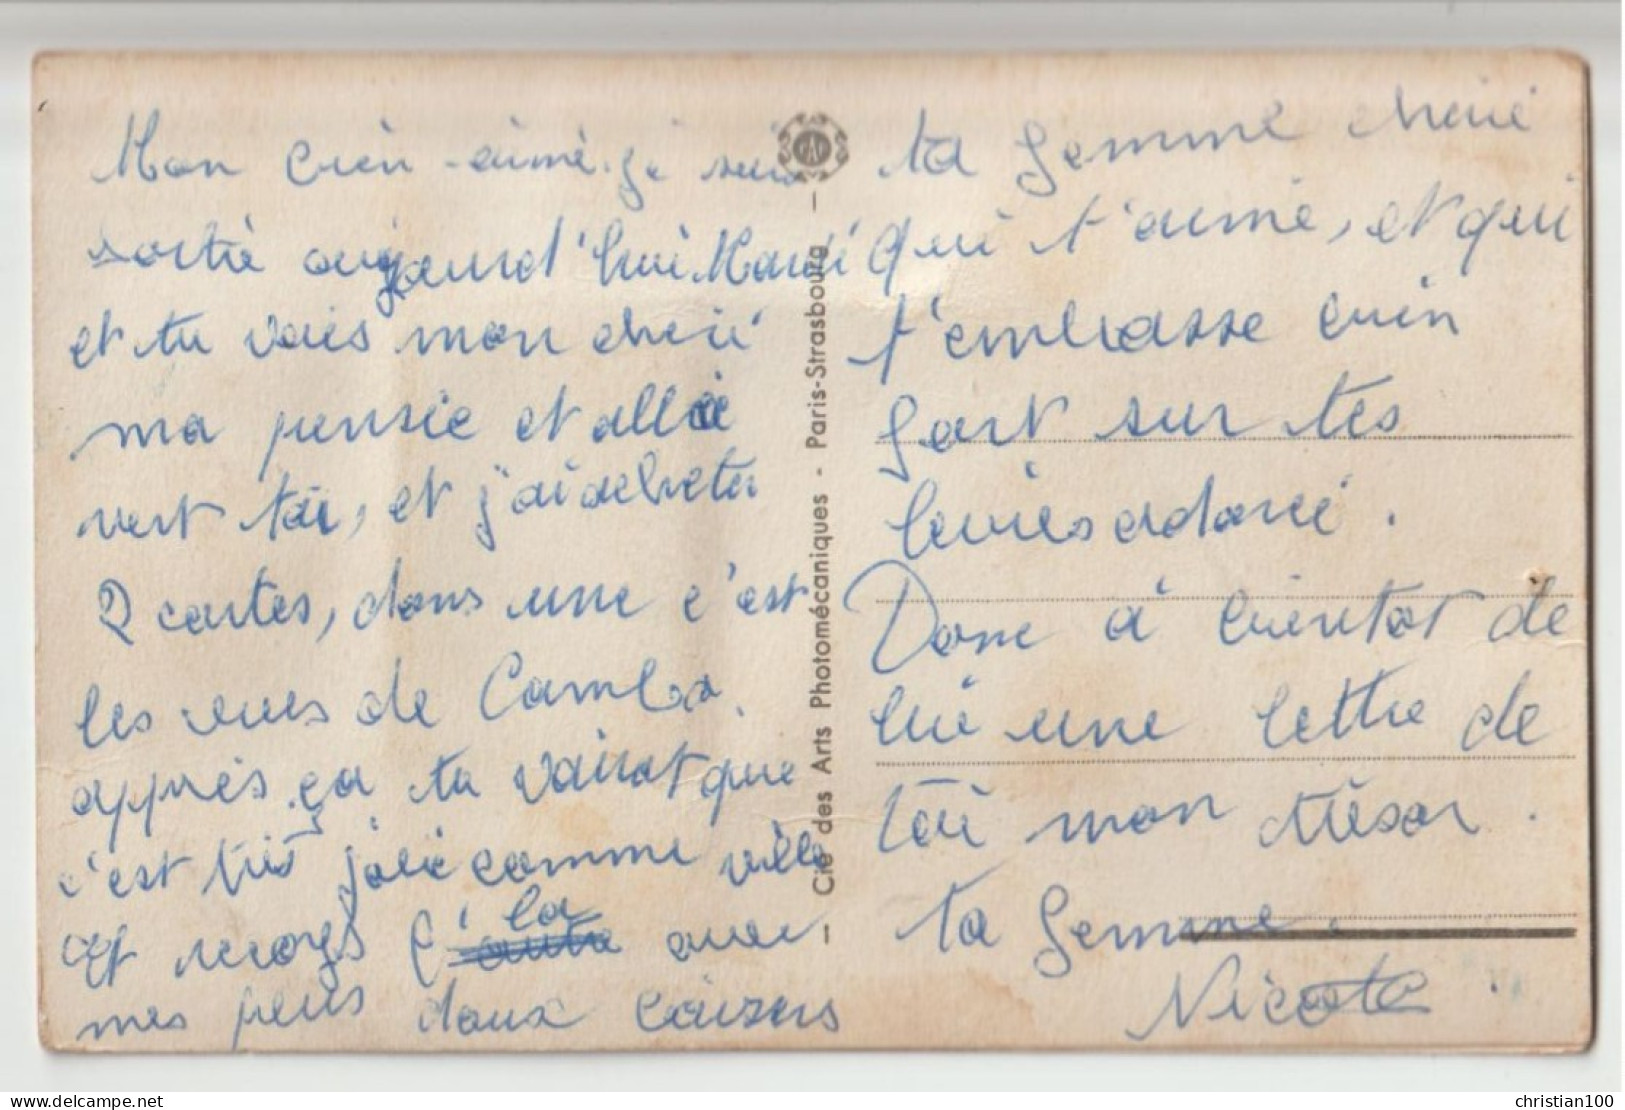 Mon bien-aimé. je suis
sortie aujourd'hui Mardi
et tu vois mon cherie
ma pensée et allé
vert toi, et j'ai acheter
2 cartes, dans une c'est
les vues de Cambo.
apprès ça tu voira que
c'est très jolie comme ville
Et reçoys la avec
mes plus doux baizers
ta femme cherie
qui t'aime, et qui
t'embrasse bien
fort sur tes
levres adoreé.
Donc à bientot de
lui une lettre de
toi mon trésor.
ta femme.
Nicole
Cie des Arts Photomécaniques - Paris-Strasbourg -
delcampe.net
christian100